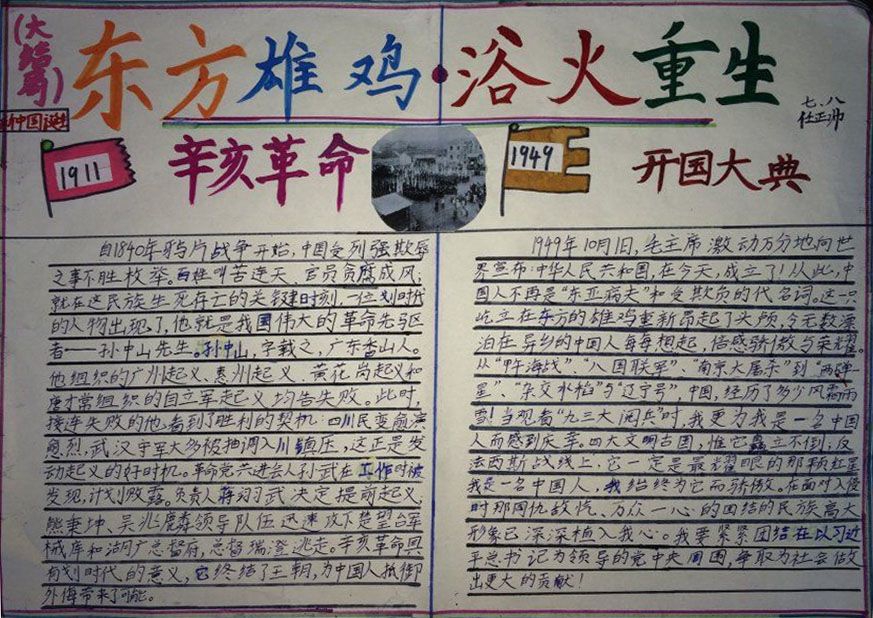 (大结局)
东方雄鸡·浴火重生
新中国诞生
七、八
任正沛
1911
辛亥革命
1949
开国大典
自1840年鸦片战争开始,中国受列强欺辱
之事不胜枚举。百姓叫苦连天,官员贪腐成风,
就在这民族生死存亡的关键时刻,一位划时代
的人物出现了,他就是我国伟大的革命先驱
者——孙中山先生。孙中山,字载之,广东香山人。
他组织的广州起义、惠州起义、黄花岗起义和
唐才常组织的自立军起义均告失败。此时,
接连失败的他,看到了胜利的契机:四川民变愈演
愈烈,武汉守军大多被抽调入川镇压,这正是发
动起义的好时机。革命党共进会人孙武在工作时被
发现,计划败露。负责人蒋翊武决定提前起义;
熊秉坤、吴兆麟领导队伍迅速攻下楚望台军
械库和湖广总督府,总督瑞澄逃走。辛亥革命具
有划时代的意义,它终结了王朝,为中国人抵御
外侮带来了可能。
1949年10月1日,毛主席激动万分地向世
界宣布:中华人民共和国,在今天,成立了!从此,中
国人不再是“东亚病夫”和受欺负的代名词。这一只
屹立在东方的雄鸡重新昂起了头颅,令无数漂
泊在异乡的中国人每每想起,倍感骄傲与荣耀。
从“甲午海战”、“八国联军”、“南京大屠杀”到“两弹一
星”、“杂交水稻”与“辽宁号”,中国,经历了多少风霜雨
雪!当观看“九三大阅兵”时,我更为我是一名中国
人而感到庆幸。四大文明古国,惟它矗立不倒;反
法西斯战线上,它一定是最耀眼的那颗红星
我是一名中国人,我始终为它而骄傲。在面对入侵
时那同仇敌忾、万众一心的团结的民族高大
形象已深深植入我心。我要紧紧团结在以习近
平总书记为领导的党中央周围,争取为社会做
出更大的贡献!